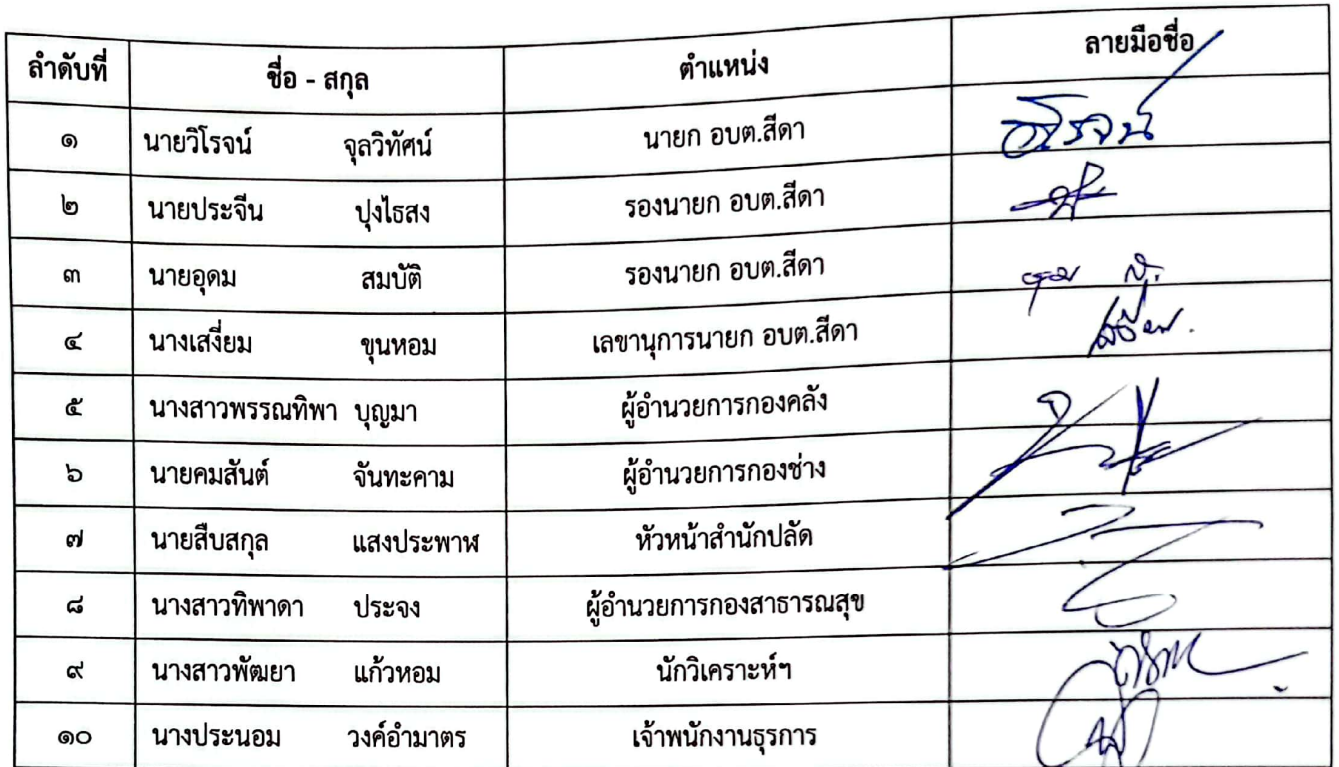 ลำดับที่ ชื่อ - สกุล ตำแหน่ง ลายมือชื่อ
๑ นายวิโรจน์ จุลวิทัศน์ นายก อบต.สีดา วิโรจน์
๒ นายประจีน ปุงไธสง รองนายก อบต.สีดา
๓ นายอุดม สมบัติ รองนายก อบต.สีดา
๔ นางเสงี่ยม ขุนหอม เลขานุการนายก อบต.สีดา
๕ นางสาวพรรณทิพา บุญมา ผู้อำนวยการกองคลัง
๖ นายคมสันต์ จันทะคาม ผู้อำนวยการกองช่าง
๗ นายสืบสกุล แสงประพาฬ หัวหน้าสำนักปลัด
๘ นางสาวทิพาดา ประจง ผู้อำนวยการกองสาธารณสุข
๙ นางสาวพัฒยา แก้วหอม นักวิเคราะห์ฯ
๑๐ นางประนอม วงค์อำมาตร เจ้าพนักงานธุรการ